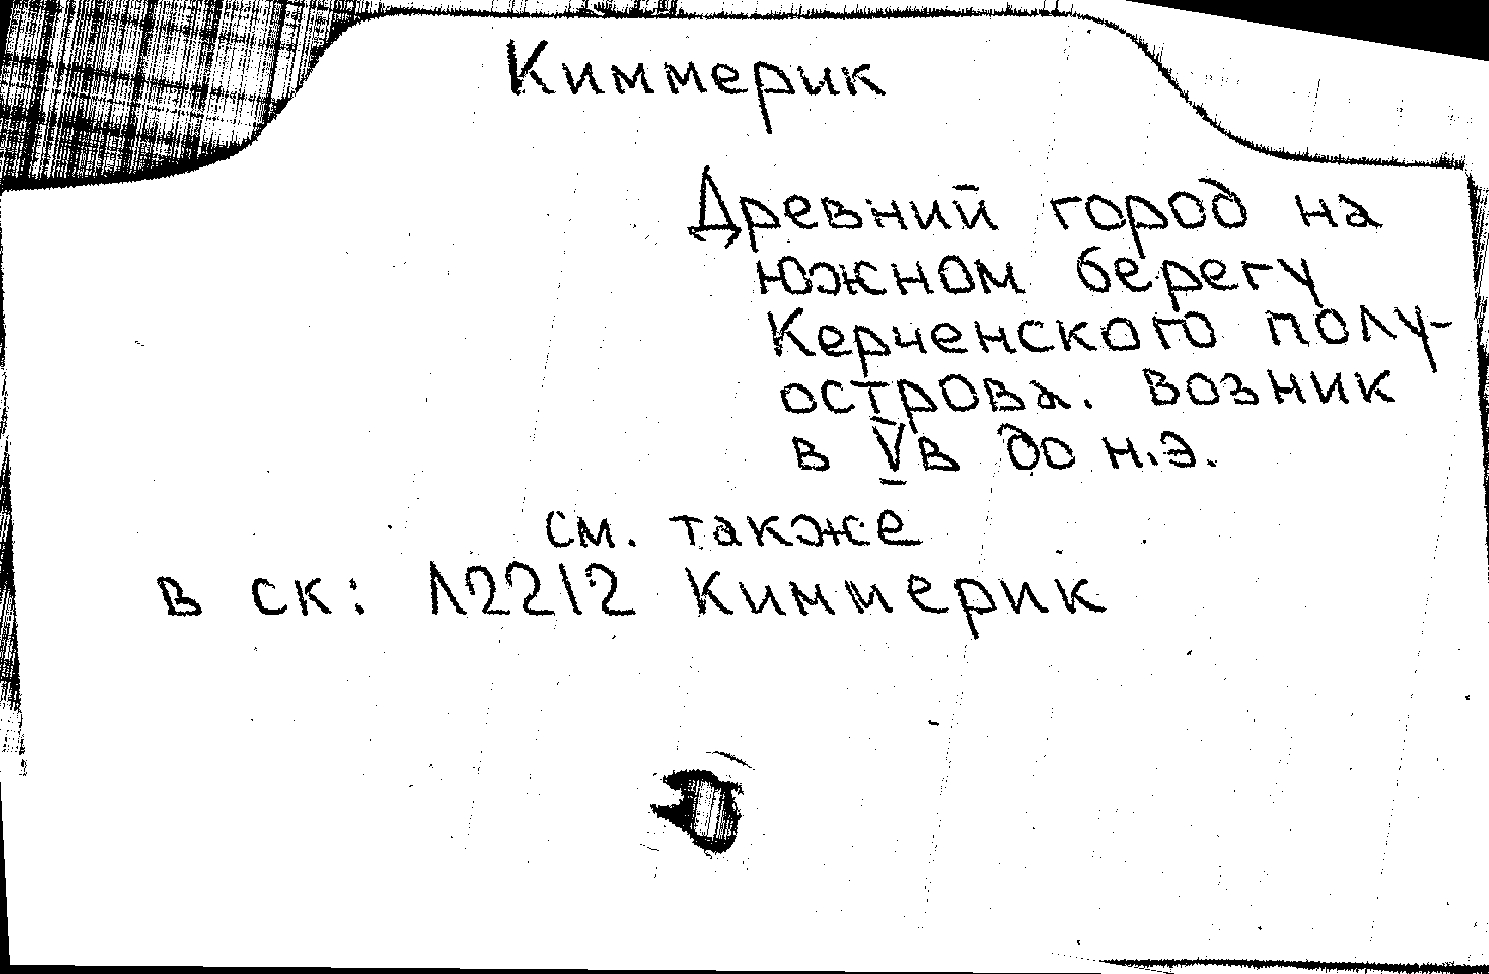 Киммерик
Древний город на
южном берегу
Керченского полу-
острова. возник
в V в до н.э.
см. также
в ск: Л2212 Киммерик